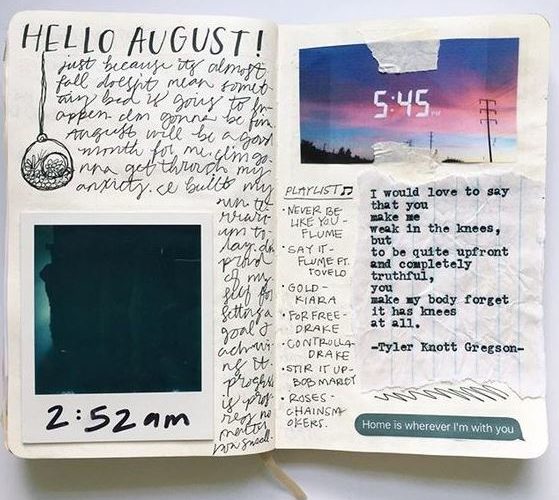 HELLO AUGUST!
just because its almost
fall doesn't mean somet-
hing bad is going to ha-
appen. im gonna be fine
August will be a good
month for me. im go-
nna get through my
anxiety. i built my
run to
day. im
proud
of my
self for
setting a
goal &
achievi-
ng it.
progress
is prog-
ress no
matter
how small.
2:52am
5:45
PM
PLAYLIST♫
• NEVER BE
LIKE YOU -
FLUME
• SAY IT -
FLUME FT.
TOVELO
• GOLD -
KIARA
• FOR FREE -
DRAKE
• CONTROLLA
DRAKE
• STIR IT UP -
BOB MARLY
• ROSES -
CHAINSM
OKERS.
I would love to say
that you
make me
weak in the knees,
but
to be quite upfront
and completely
truthful,
you
make my body forget
it has knees
at all.
-Tyler Knott Gregson-
Home is wherever I'm with you